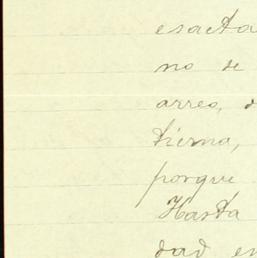 esacta
no se
arreo, d
tierna,
porque
Hasta
dad en